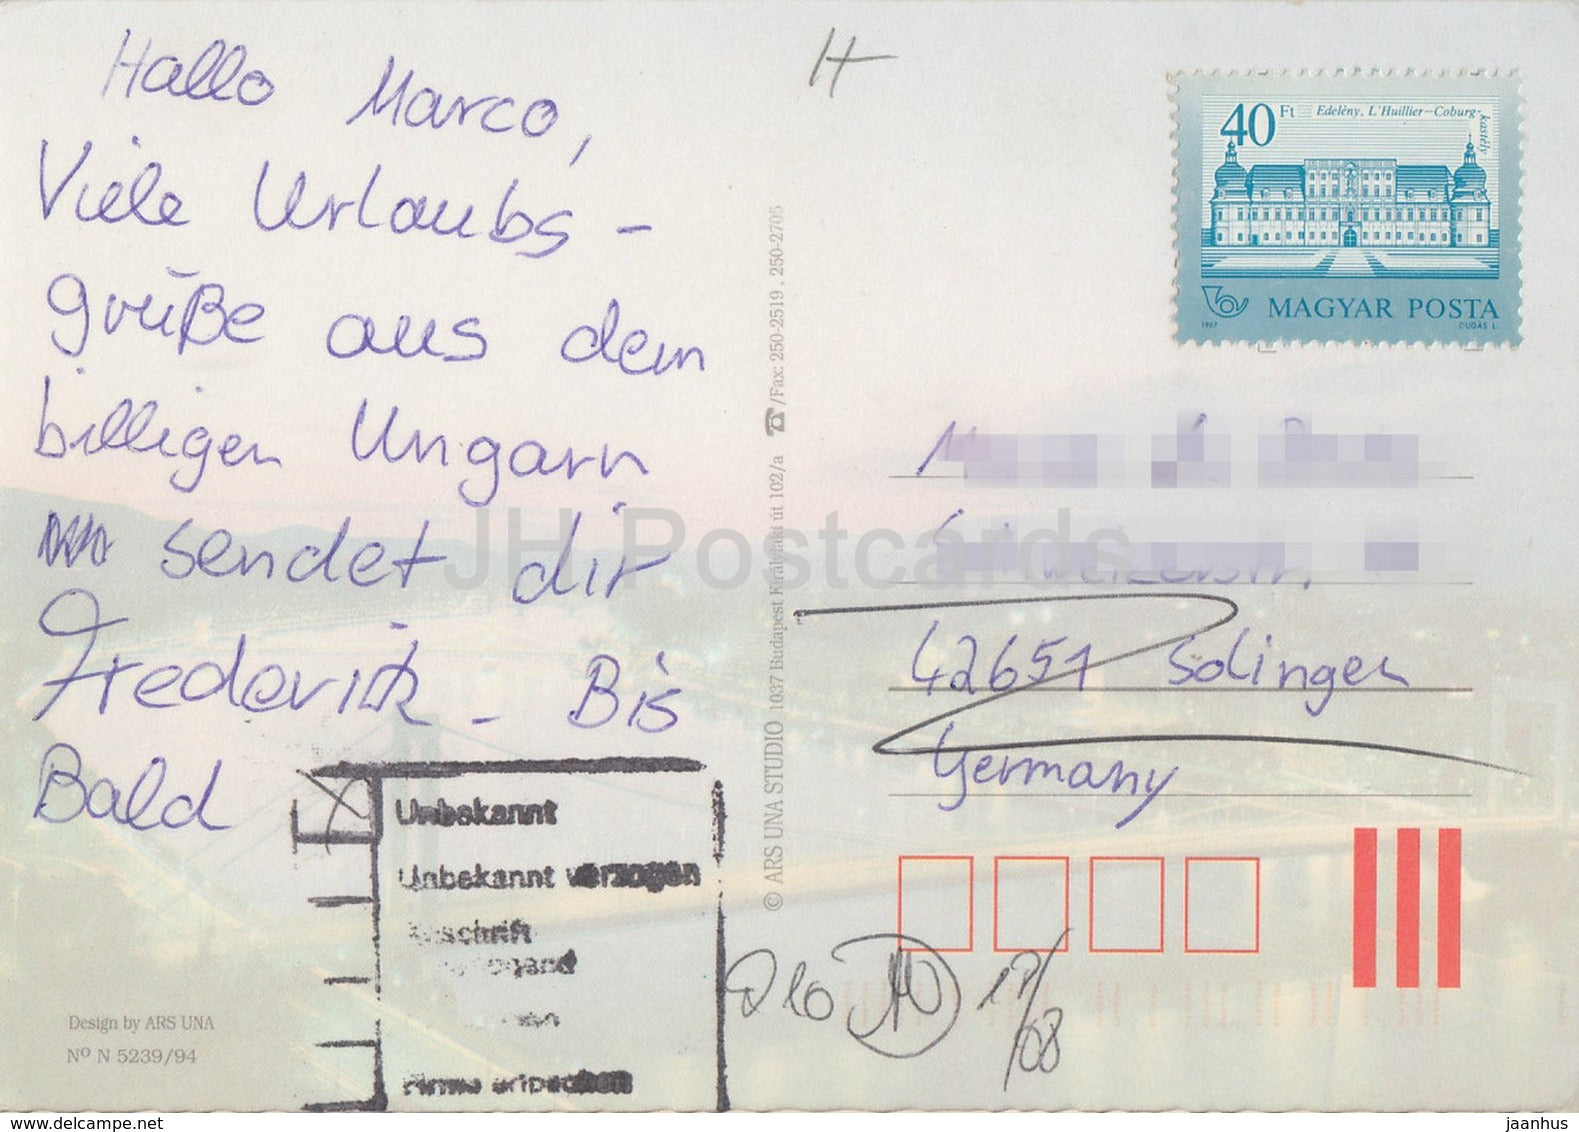 Hallo Marco,
Viele Urlaubs-
grüße aus dem
billigen Ungarn
sendet dir
Frederick - Bis
Bald
H
40 Ft
Edelény, L'Huillier-Coburg-kastély
MAGYAR POSTA
1987
DUDÁS L.
42651 Solingen
Germany
Unbekannt
Unbekannt verzogen
17/08
© ARS UNA STUDIO 1037 Budapest Királylaki út 102/a ☎/Fax: 250-2519, 250-2705
Design by ARS UNA
Nº N 5239/94
JH Postcards
www.delcampe.net
jaanhus